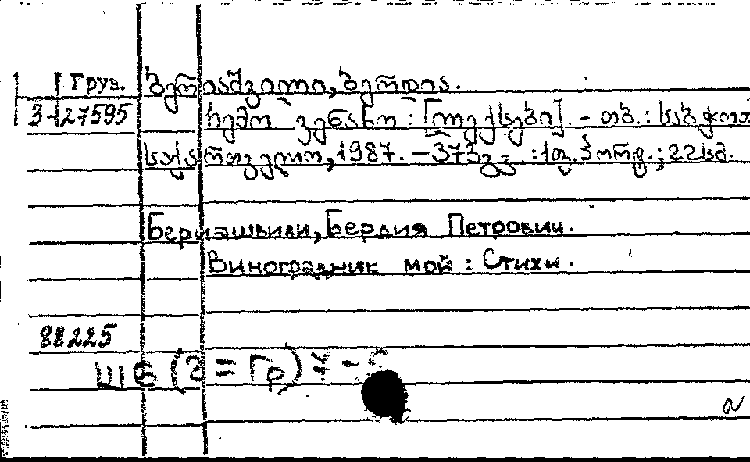 Груз. ბერიაშვილი, ბერდია.
3-127595 ჩემო ვენახო : [ლექსები]. - თბ. : საბჭოთა
საქართველო, 1987. - 373გვ. : 1ფ. პორტ. ; 22სმ.
Бериашвили, Бердия Петрович.
Виноградник мой : Стихи.
88225
Ш6 (2=Гр) 7-